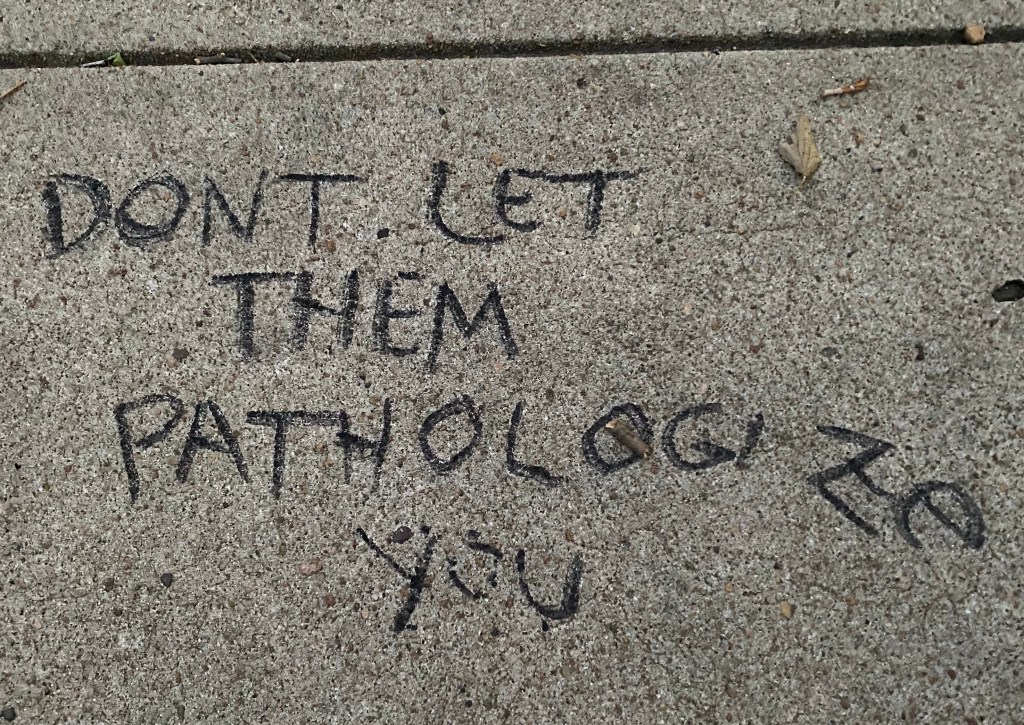 DONT LET
THEM
PATHOLOGIZE
YOU